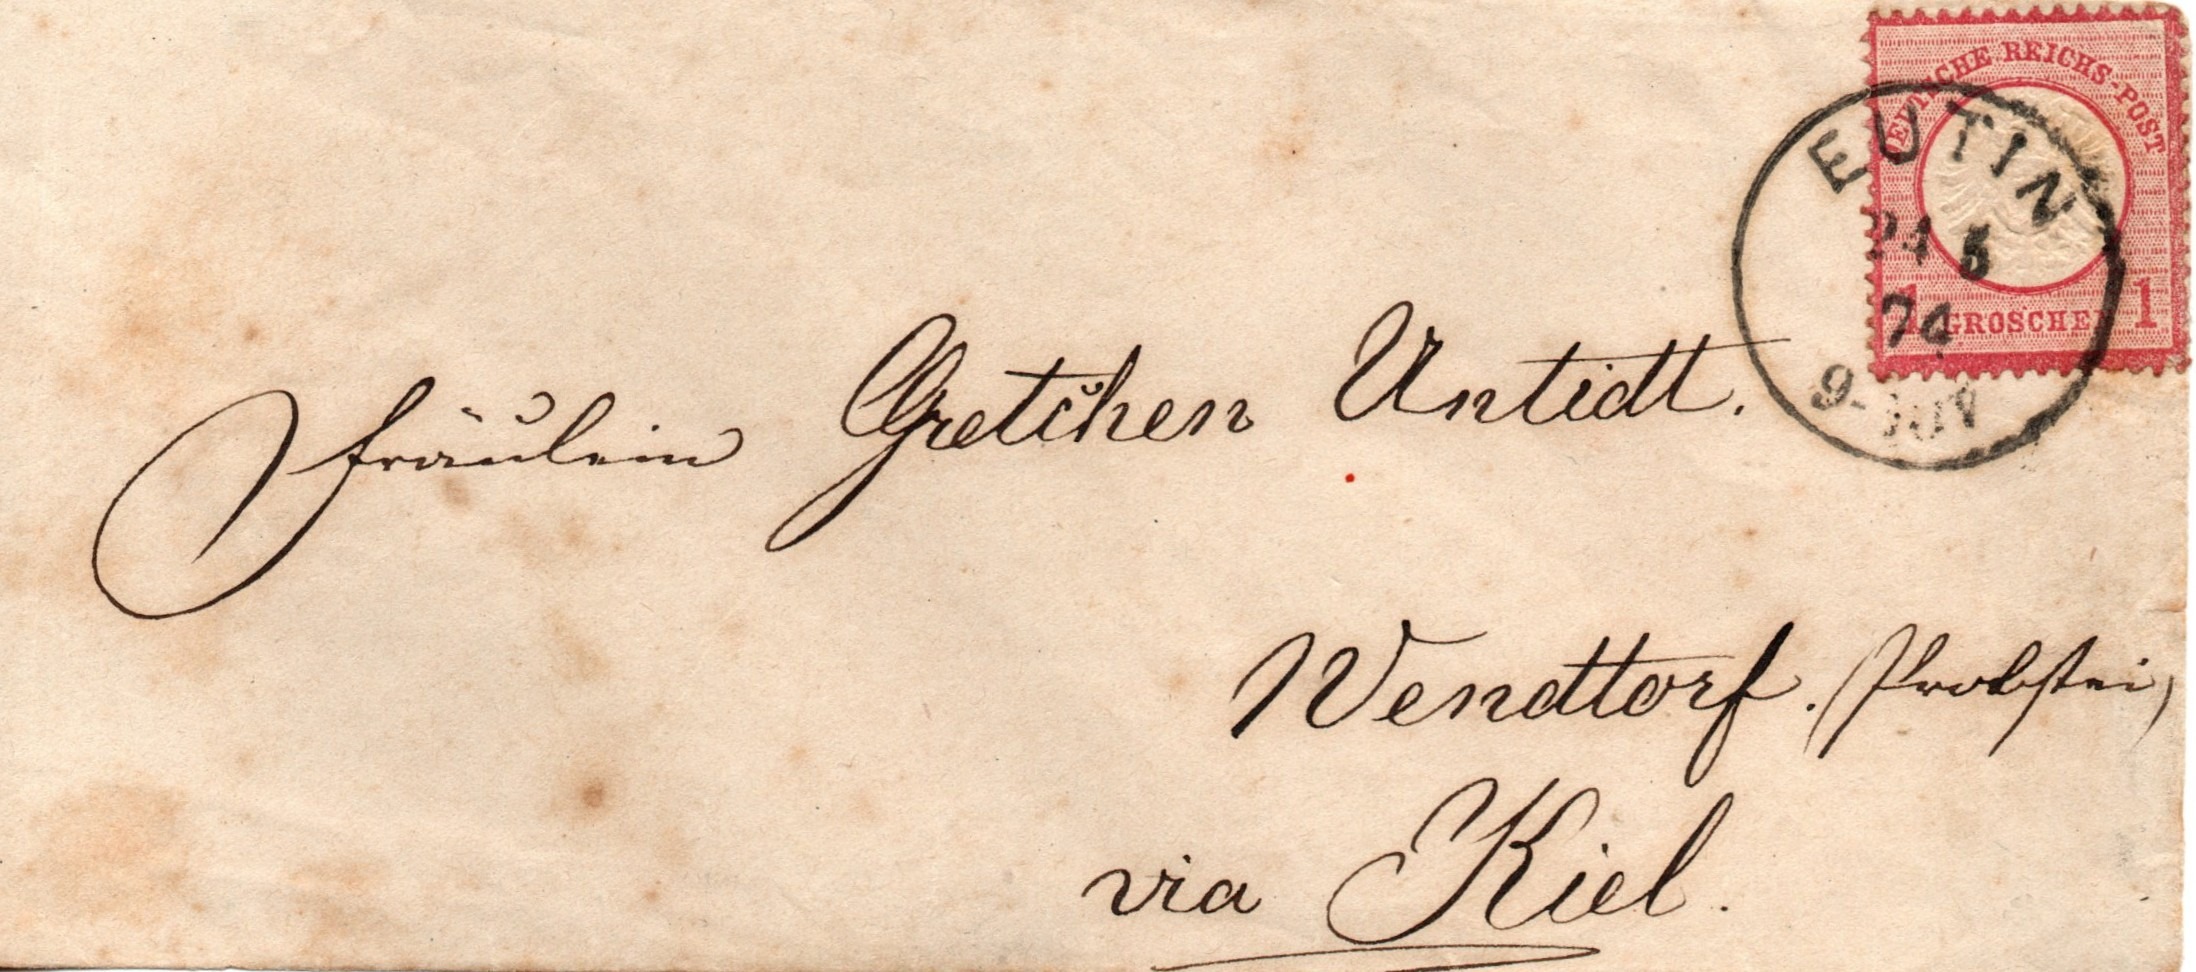 DEUTSCHE REICHS-POST
1 GROSCHEN 1
EUTIN
24 5
74
9-10 V
Fräulein Gretchen Untiedt.
Wendtorf. (Probstei)
via Kiel.